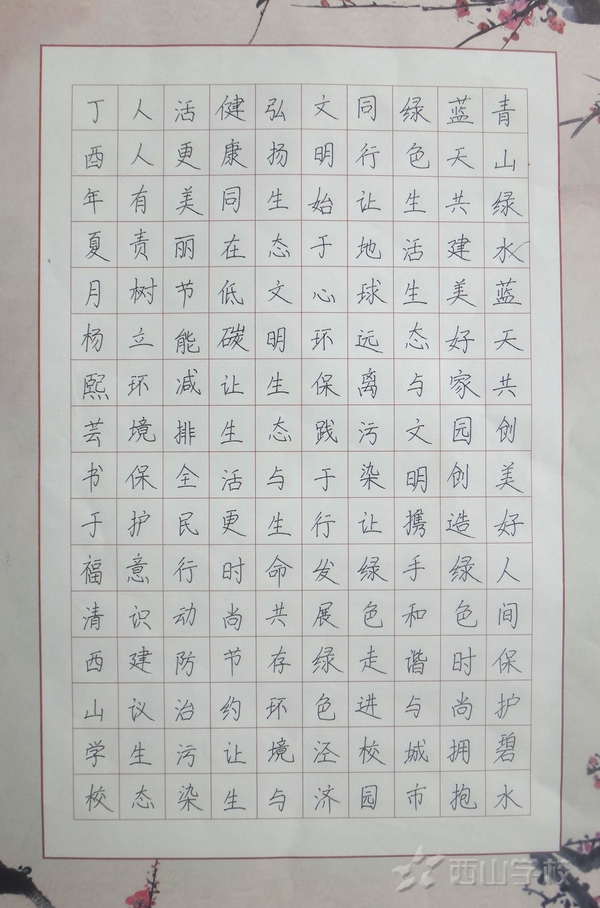 青山绿水蓝天共创美好人间保护碧水
蓝天共建美好家园创造绿色时尚拥抱
绿色生活生态与文明携手和谐与城市
同行让地球远离污染让绿色走进校园
文明始于心环保践于行发展绿色泾济
弘扬生态文明生态与生命共存环境与
健康同在低碳让生活更时尚节约让生
活更美丽节能减排全民行动防治污染
人人有责树立环境保护意识建议生态
丁酉年夏月杨熙芸书于福清西山学校
西山学校